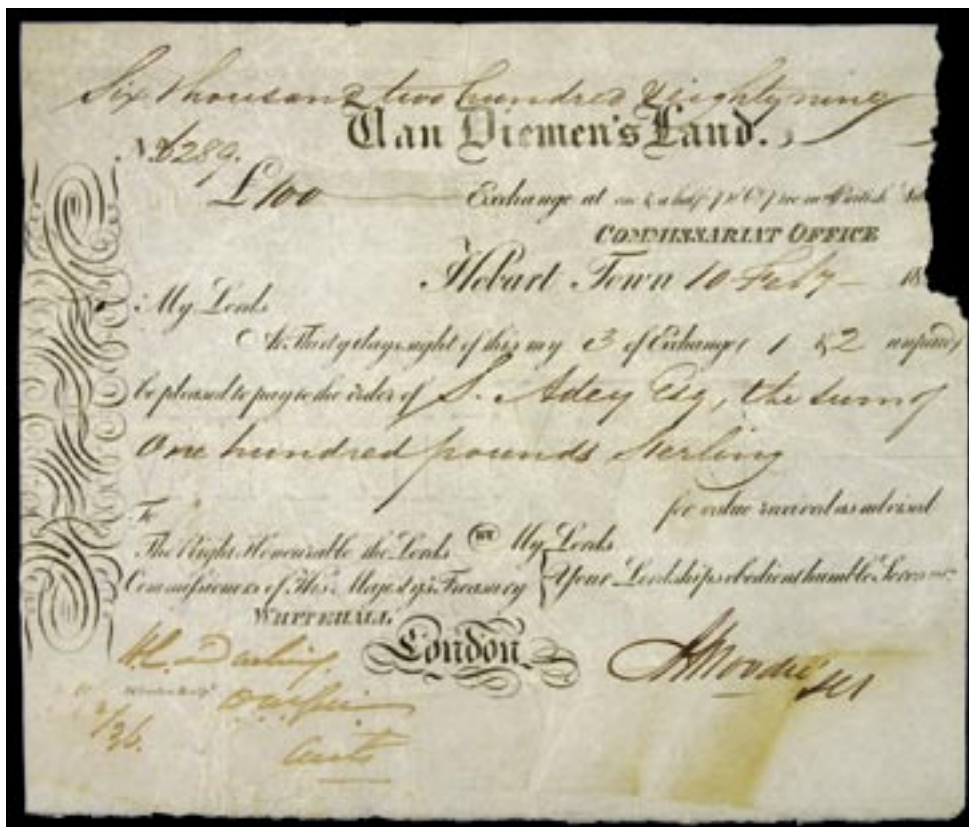 Six Thousand two hundred & eighty nine
Van Diemen's Land.
No. 6289.
£100 Exchange at one & a half
COMMISSARIAT OFFICE
Hobart Town 10 Feby 18
My Lords
At Thirty days sight of this my 3 of Exchange (1 & 2 unpaid)
be pleased to pay to the order of S. Adey Esq, the sum of
One hundred pounds Sterling
for value received as advised
To
The Right Honourable the Lords
Commissioners of His Majesty's Treasury
WHITEHALL
London
My Lords
Your Lordships obedient humble Servant
A Moodie